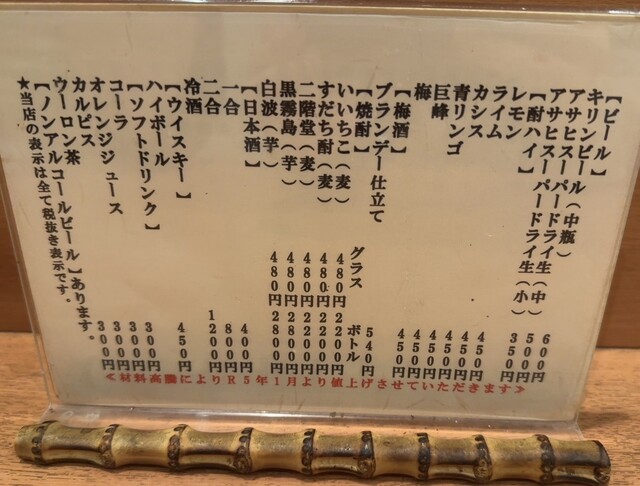 【ビール】
キリンビール(中瓶) 600円
アサヒスーパードライ生(中) 500円
アサヒスーパードライ生(小) 350円
【酎ハイ】
レモン 450円
ライム 450円
カシス 450円
青リンゴ 450円
巨峰 450円
梅 450円
【梅酒】
ブランデー仕立て 540円
【焼酎】 グラス ボトル
いいちこ(麦) 480円 2200円
すだち酎(麦) 480円 2200円
二階堂(麦) 480円 2200円
黒霧島(芋) 480円 2800円
白波(芋) 480円 2800円
【日本酒】
一合 400円
二合 800円
冷酒 1200円
【ウイスキー】
ハイボール 450円
【ソフトドリンク】
コーラ 300円
オレンジジュース 300円
カルピス 300円
ウーロン茶 300円
【ノンアルコールビール】あります。
★当店の表示は全て税抜き表示です。
≪材料高騰によりR5年1月より値上げさせていただきます≫